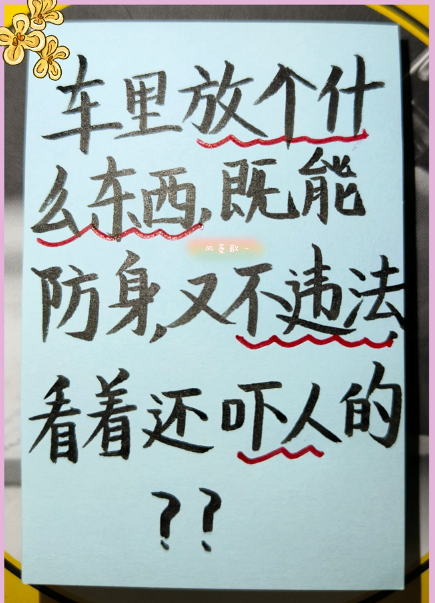 车里放个什
么东西,既能
防身,又不违法
看着还吓人的
??